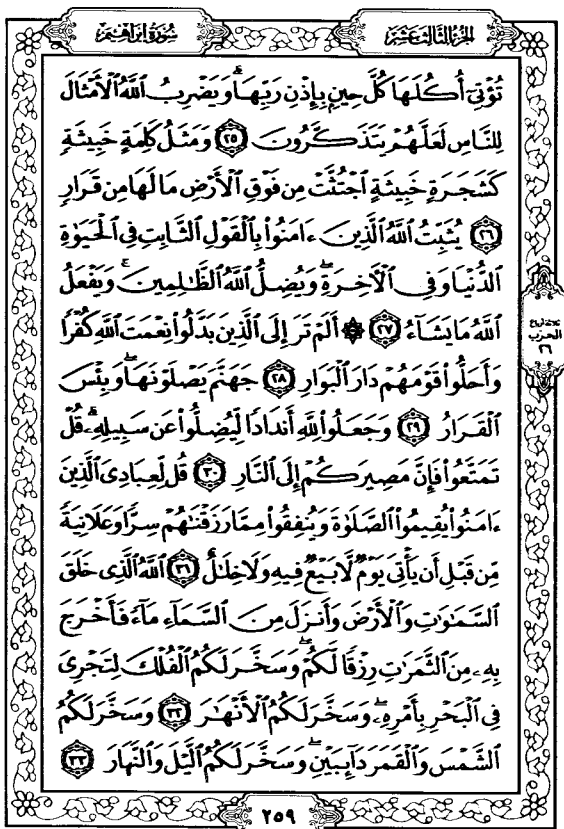 الجزء الثالث عشر
سورة إبراهيم
تُؤْتِىٓ أُكُلَهَا كُلَّ حِينٍۭ بِإِذْنِ رَبِّهَاۗ وَيَضْرِبُ ٱللَّهُ ٱلْأَمْثَالَ
لِلنَّاسِ لَعَلَّهُمْ يَتَذَكَّرُونَ ٢٥ وَمَثَلُ كَلِمَةٍ خَبِيثَةٍ
كَشَجَرَةٍ خَبِيثَةٍ ٱجْتُثَّتْ مِن فَوْقِ ٱلْأَرْضِ مَا لَهَا مِن قَرَارٍ
٢٦ يُثَبِّتُ ٱللَّهُ ٱلَّذِينَ ءَامَنُوا۟ بِٱلْقَوْلِ ٱلثَّابِتِ فِى ٱلْحَيَوٰةِ
ٱلدُّنْيَا وَفِى ٱلْءَاخِرَةِۖ وَيُضِلُّ ٱللَّهُ ٱلظَّـٰلِمِينَۚ وَيَفْعَلُ
ٱللَّهُ مَا يَشَآءُ ٢٧ ۞ أَلَمْ تَرَ إِلَى ٱلَّذِينَ بَدَّلُوا۟ نِعْمَتَ ٱللَّهِ كُفْرًا
وَأَحَلُّوا۟ قَوْمَهُمْ دَارَ ٱلْبَوَارِ ٢٨ جَهَنَّمَ يَصْلَوْنَهَاۖ وَبِئْسَ
ٱلْقَرَارُ ٢٩ وَجَعَلُوا۟ لِلَّهِ أَندَادًا لِّيُضِلُّوا۟ عَن سَبِيلِهِۦۗ قُلْ
تَمَتَّعُوا۟ فَإِنَّ مَصِيرَكُمْ إِلَى ٱلنَّارِ ٣٠ قُل لِّعِبَادِىَ ٱلَّذِينَ
ءَامَنُوا۟ يُقِيمُوا۟ ٱلصَّلَوٰةَ وَيُنفِقُوا۟ مِمَّا رَزَقْنَـٰهُمْ سِرًّا وَعَلَانِيَةً
مِّن قَبْلِ أَن يَأْتِىَ يَوْمٌ لَّا بَيْعٌ فِيهِ وَلَا خِلَـٰلٌ ٣١ ٱللَّهُ ٱلَّذِى خَلَقَ
ٱلسَّمَـٰوَٰتِ وَٱلْأَرْضَ وَأَنزَلَ مِنَ ٱلسَّمَآءِ مَآءً فَأَخْرَجَ
بِهِۦ مِنَ ٱلثَّمَرَٰتِ رِزْقًا لَّكُمْۖ وَسَخَّرَ لَكُمُ ٱلْفُلْكَ لِتَجْرِىَ
فِى ٱلْبَحْرِ بِأَمْرِهِۦۖ وَسَخَّرَ لَكُمُ ٱلْأَنْهَـٰرَ ٣٢ وَسَخَّرَ لَكُمُ
ٱلشَّمْسَ وَٱلْقَمَرَ دَآئِبَيْنِۖ وَسَخَّرَ لَكُمُ ٱلَّيْلَ وَٱلنَّهَارَ ٣٣
ثلاثة أرباع
الحزب
٢٦
٢٥٩